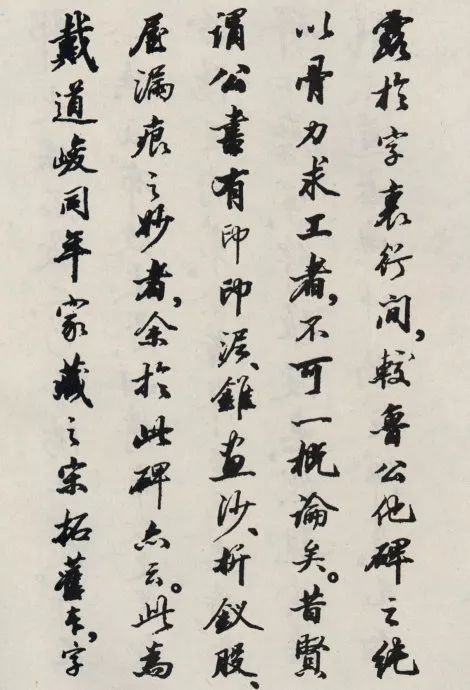 露於字裏行间,較魯公他碑之純
以骨力求工者,不可一概論矣。昔賢
謂公書有印印泥、錐画沙、折釵股、
屋漏痕之妙者,余於此碑亦云。此為
戴道峻同年家藏之宋拓舊本,字